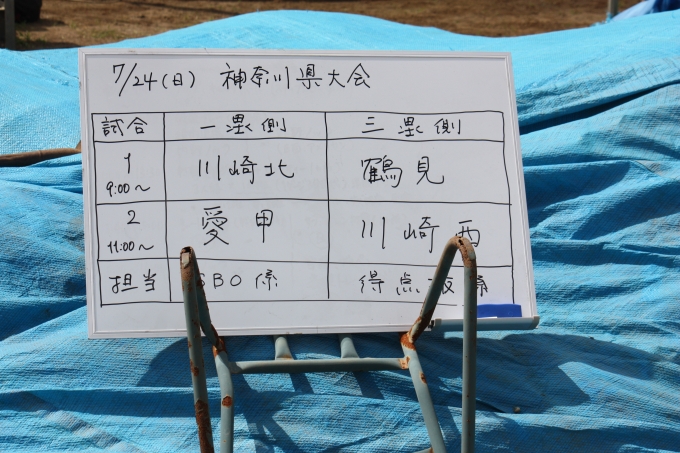 7/24(日) 神奈川県大会
試合 一塁側 三塁側
1 9:00〜 川崎北 鶴見
2 11:00〜 愛甲 川崎西
担当 SBO係 得点板係